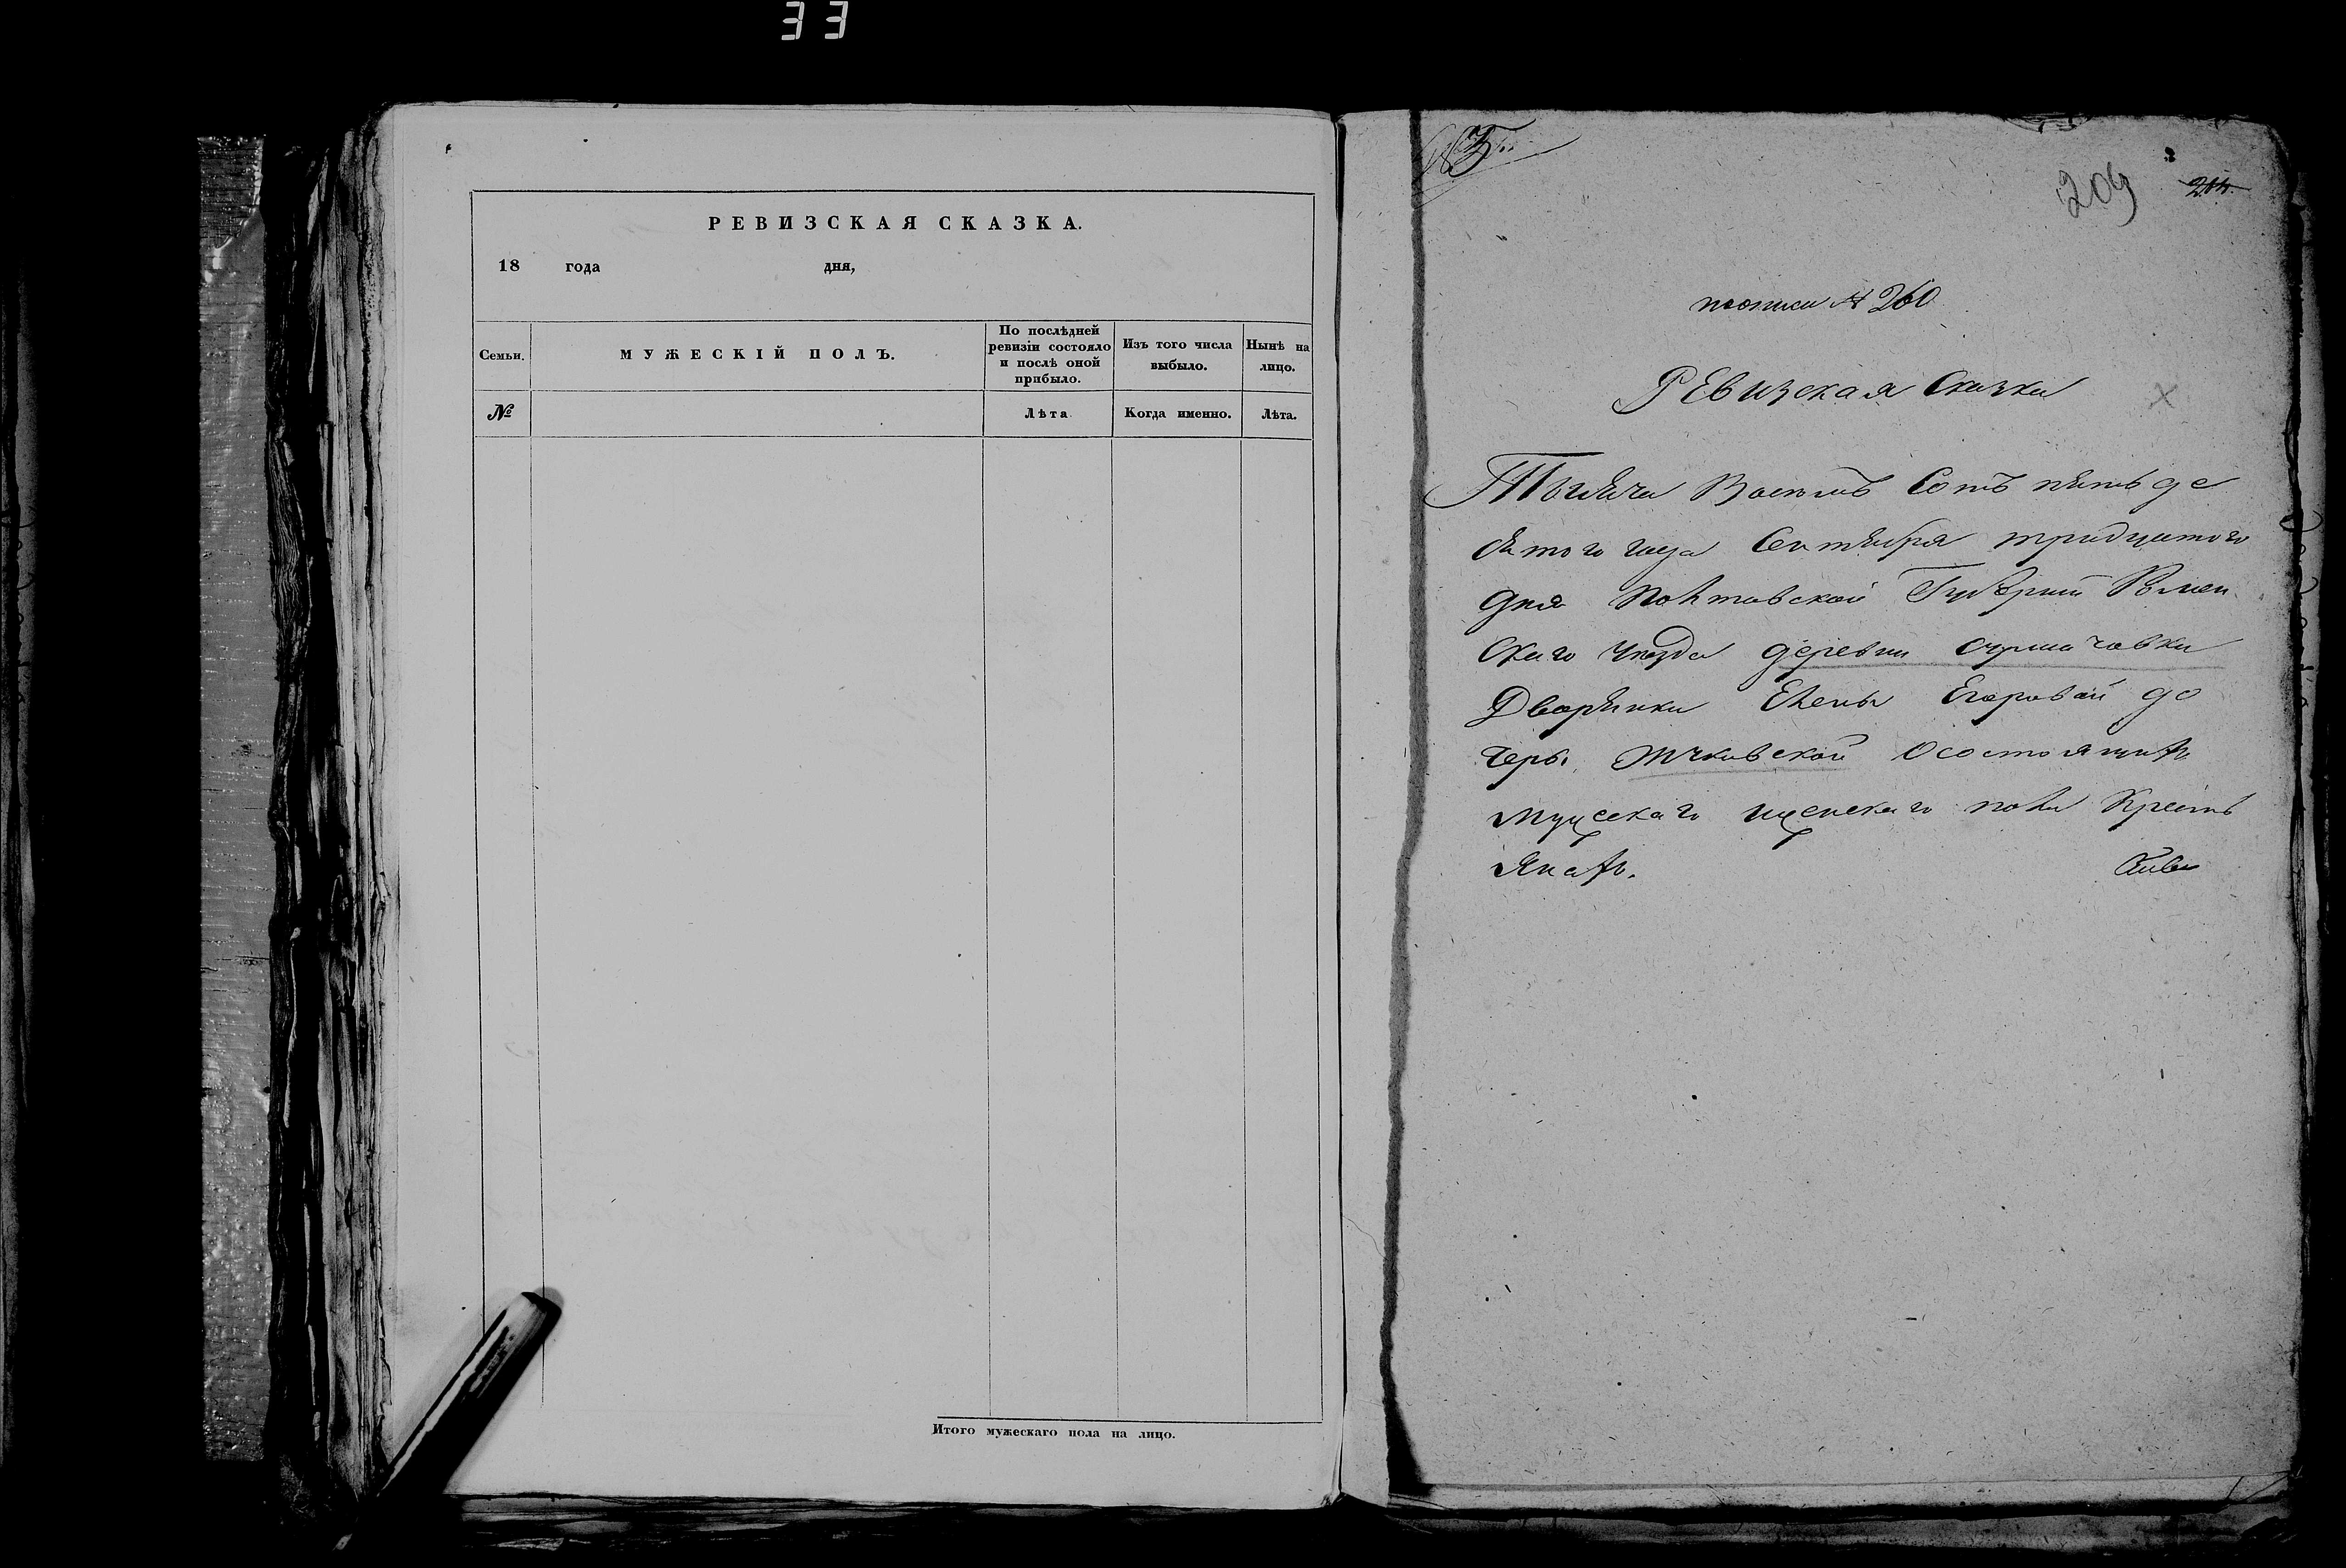 33
РЕВИЗСКАЯ СКАЗКА.
18 года дня,
Семьи.
МУЖЕСКІЙ ПОЛЪ.
По послѣдней
ревизіи состояло
и послѣ оной
прибыло.
Изъ того числа
выбыло.
Нынѣ на
лицо.
№
Лѣта
Когда именно.
Лѣта.
Итого мужескаго пола на лицо.
209
204.
поописи № 260
Ревизская Сказка
Тысяча Восемь Сотъ пять де
сятого года Сентября тридцатого
дня Полтавской Губерніи Ромен
скаго уезда деревни
Дворянки Елены Егоровай до
черы Осостоящихъ
мужескаго женскаго пола Крестъ
янахъ.